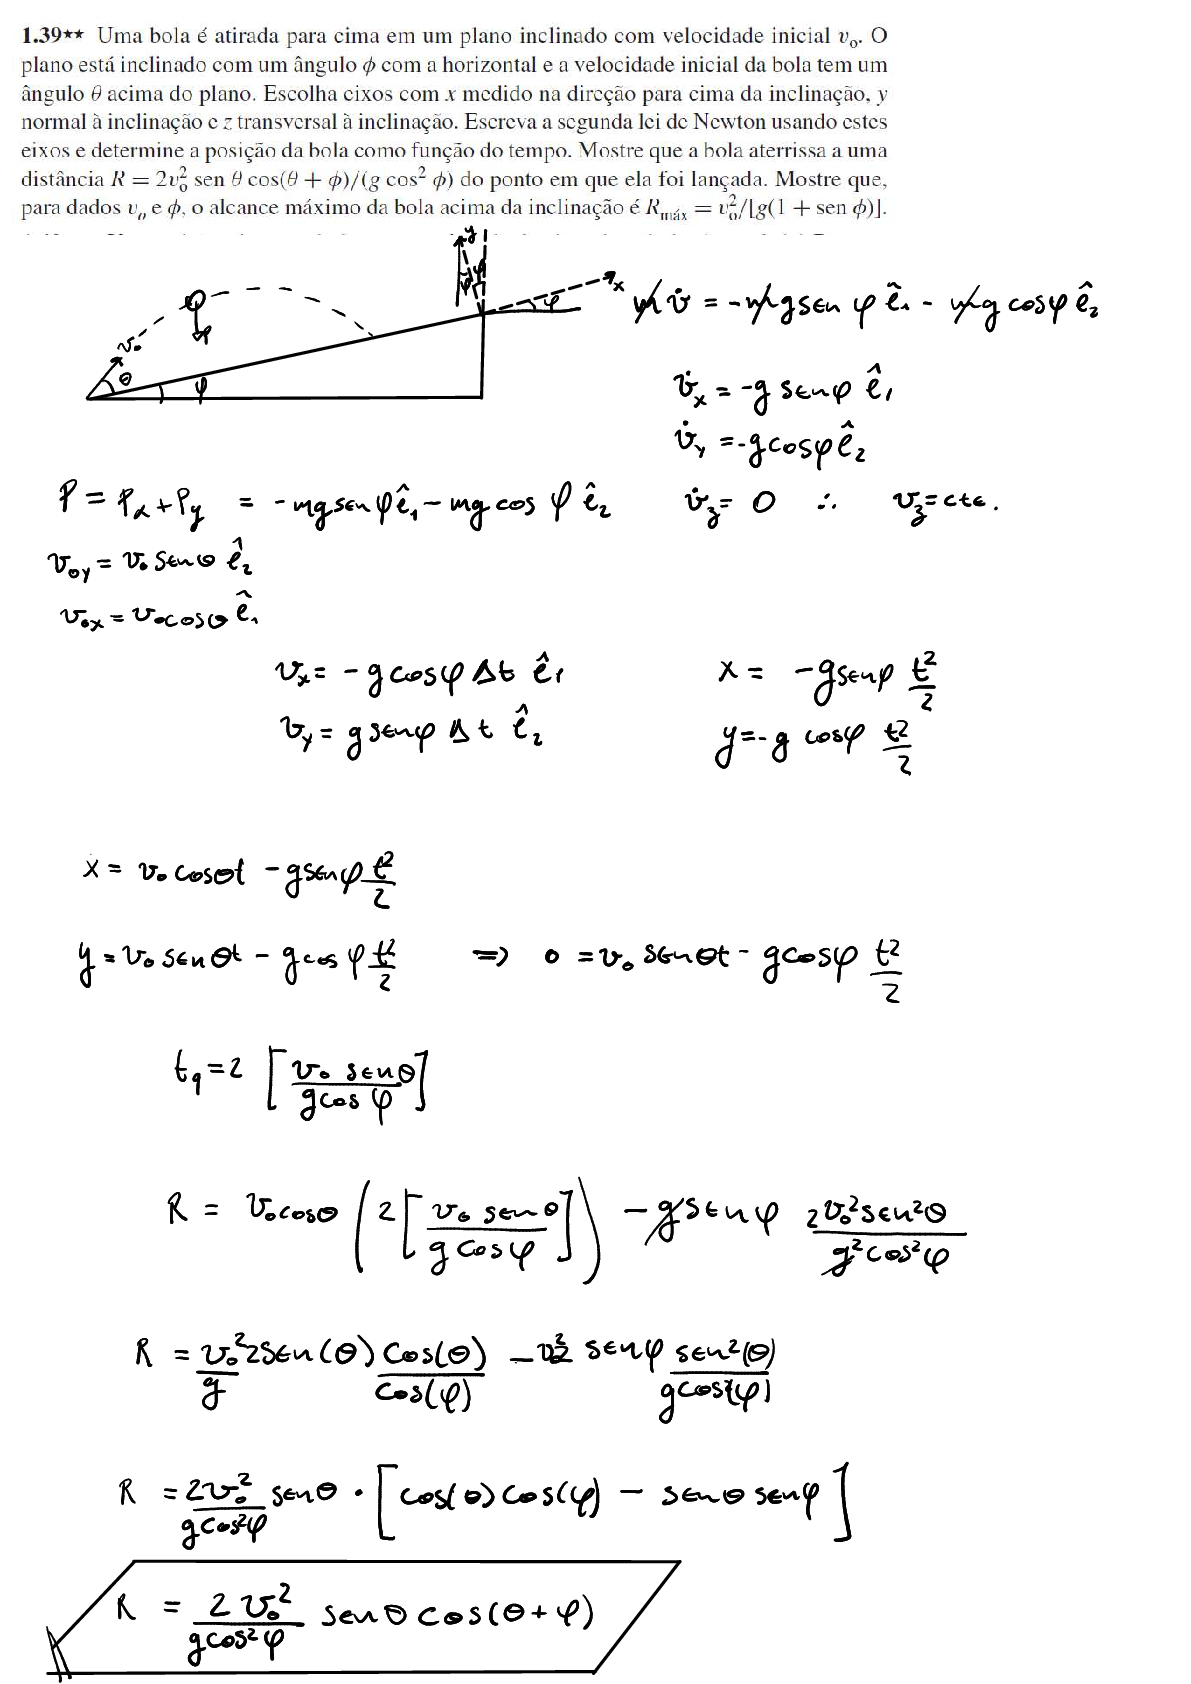 1.39** Uma bola é atirada para cima em um plano inclinado com velocidade inicial vₒ. O
plano está inclinado com um ângulo ϕ com a horizontal e a velocidade inicial da bola tem um
ângulo θ acima do plano. Escolha eixos com x medido na direção para cima da inclinação, y
normal à inclinação e z transversal à inclinação. Escreva a segunda lei de Newton usando estes
eixos e determine a posição da bola como função do tempo. Mostre que a bola aterrissa a uma
distância R = 2vₒ² sen θ cos(θ + ϕ)/(g cos² ϕ) do ponto em que ela foi lançada. Mostre que,
para dados vₒ e ϕ, o alcance máximo da bola acima da inclinação é Rmáx = vₒ²/[g(1 + sen ϕ)].
y
φ
x
φ
v₀
θ
φ
P
m v̇ = -mg sen φ ê₁ - mg cos φ ê₂
v̇x = -g sen φ ê₁
v̇y = -g cos φ ê₂
P = Px + Py = -mg sen φ ê₁ - mg cos φ ê₂
v̇z = 0 ∴ vz = cte.
v₀y = v₀ sen θ ê₂
v₀x = v₀ cos θ ê₁
vx = -g cos φ Δt ê₁
x = -g sen φ t²/2
vy = g sen φ Δt ê₂
y = -g cos φ t²/2
x = v₀ cos θt - g sen φ t²/2
y = v₀ sen θt - g cos φ t²/2 => 0 = v₀ sen θt - g cos φ t²/2
tq = 2 [v₀ sen θ / g cos φ]
R = v₀ cos θ (2 [v₀ sen θ / g cos φ]) - g sen φ 2v₀² sen² θ / g² cos² φ
R = v₀²/g 2 sen(θ) cos(θ)/cos(φ) - v₀² 2 sen φ sen²(θ) / g cos²(φ)
R = 2v₀²/g cos² φ sen θ · [cos(θ) cos(φ) - sen θ sen φ]
R = 2 v₀²/g cos² φ sen θ cos(θ + φ)